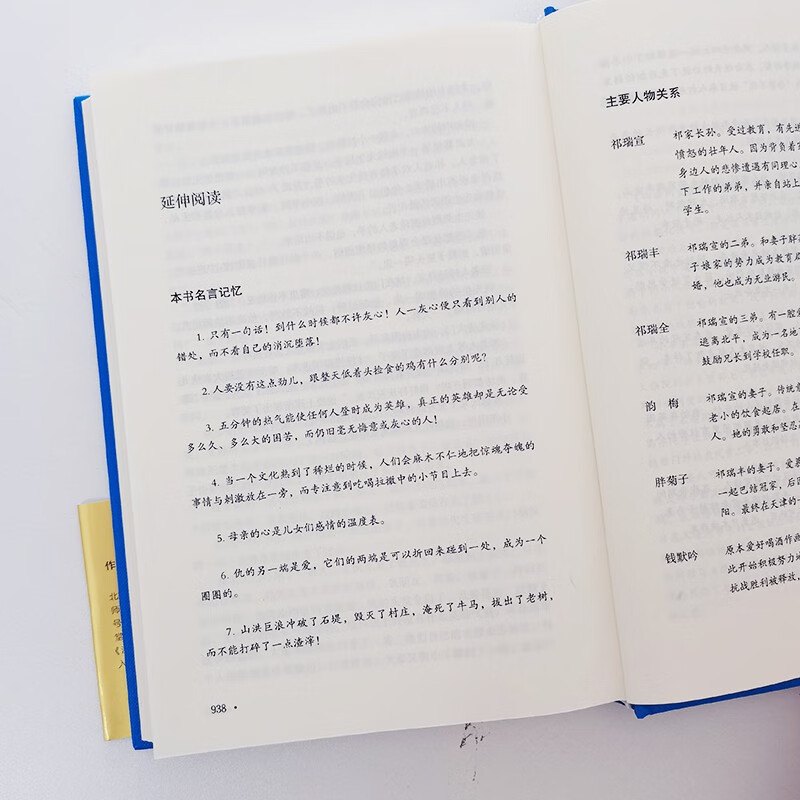 延伸阅读
本书名言记忆
1. 只有一句话！到什么时候都不许灰心！人一灰心便只看到别人的
错处，而不看自己的消沉堕落！
2. 人要没有这点劲儿，跟整天低着头捡食的鸡有什么分别呢？
3. 五分钟的热气能使任何人登时成为英雄，真正的英雄却是无论受
多么久、多么大的困苦，而仍旧毫无悔意或灰心的人！
4. 当一个文化熟到了稀烂的时候，人们会麻木不仁地把惊魂夺魄的
事情与刺激放在一旁，而专注意到吃喝拉撒中的小节目上去。
5. 母亲的心是儿女们感情的温度表。
6. 仇的另一端是爱，它们的两端是可以折回来碰到一处，成为一个
圈圈的。
7. 山洪巨浪冲破了石堤，毁灭了村庄，淹死了牛马，拔出了老树，
而不能打碎了一点渣滓！
938 •
主要人物关系
祁瑞宣 祁家长孙。受过教育，有先进
愤怒的壮年人。因为背负着
身边人的悲惨遭遇有同理心
下工作的弟弟，并亲自站上
学生。
祁瑞丰 祁瑞宣的二弟。和妻子胖
子娘家的势力成为教育局
婚，他也成为无业游民。
祁瑞全 祁瑞宣的三弟。有一腔
逃离北平，成为一名地
鼓励兄长到学校任职。
韵 梅 祁瑞宣的妻子。传统
老小的饮食起居。在
人。她的勇敢和坚忍
胖菊子 祁瑞丰的妻子。爱
一起巴结冠家，后
阳。最终在天津的一
钱默吟 原本爱好喝酒作画
此开始积极努力地
抗战胜利被释放，
作
北
师
号
望
入